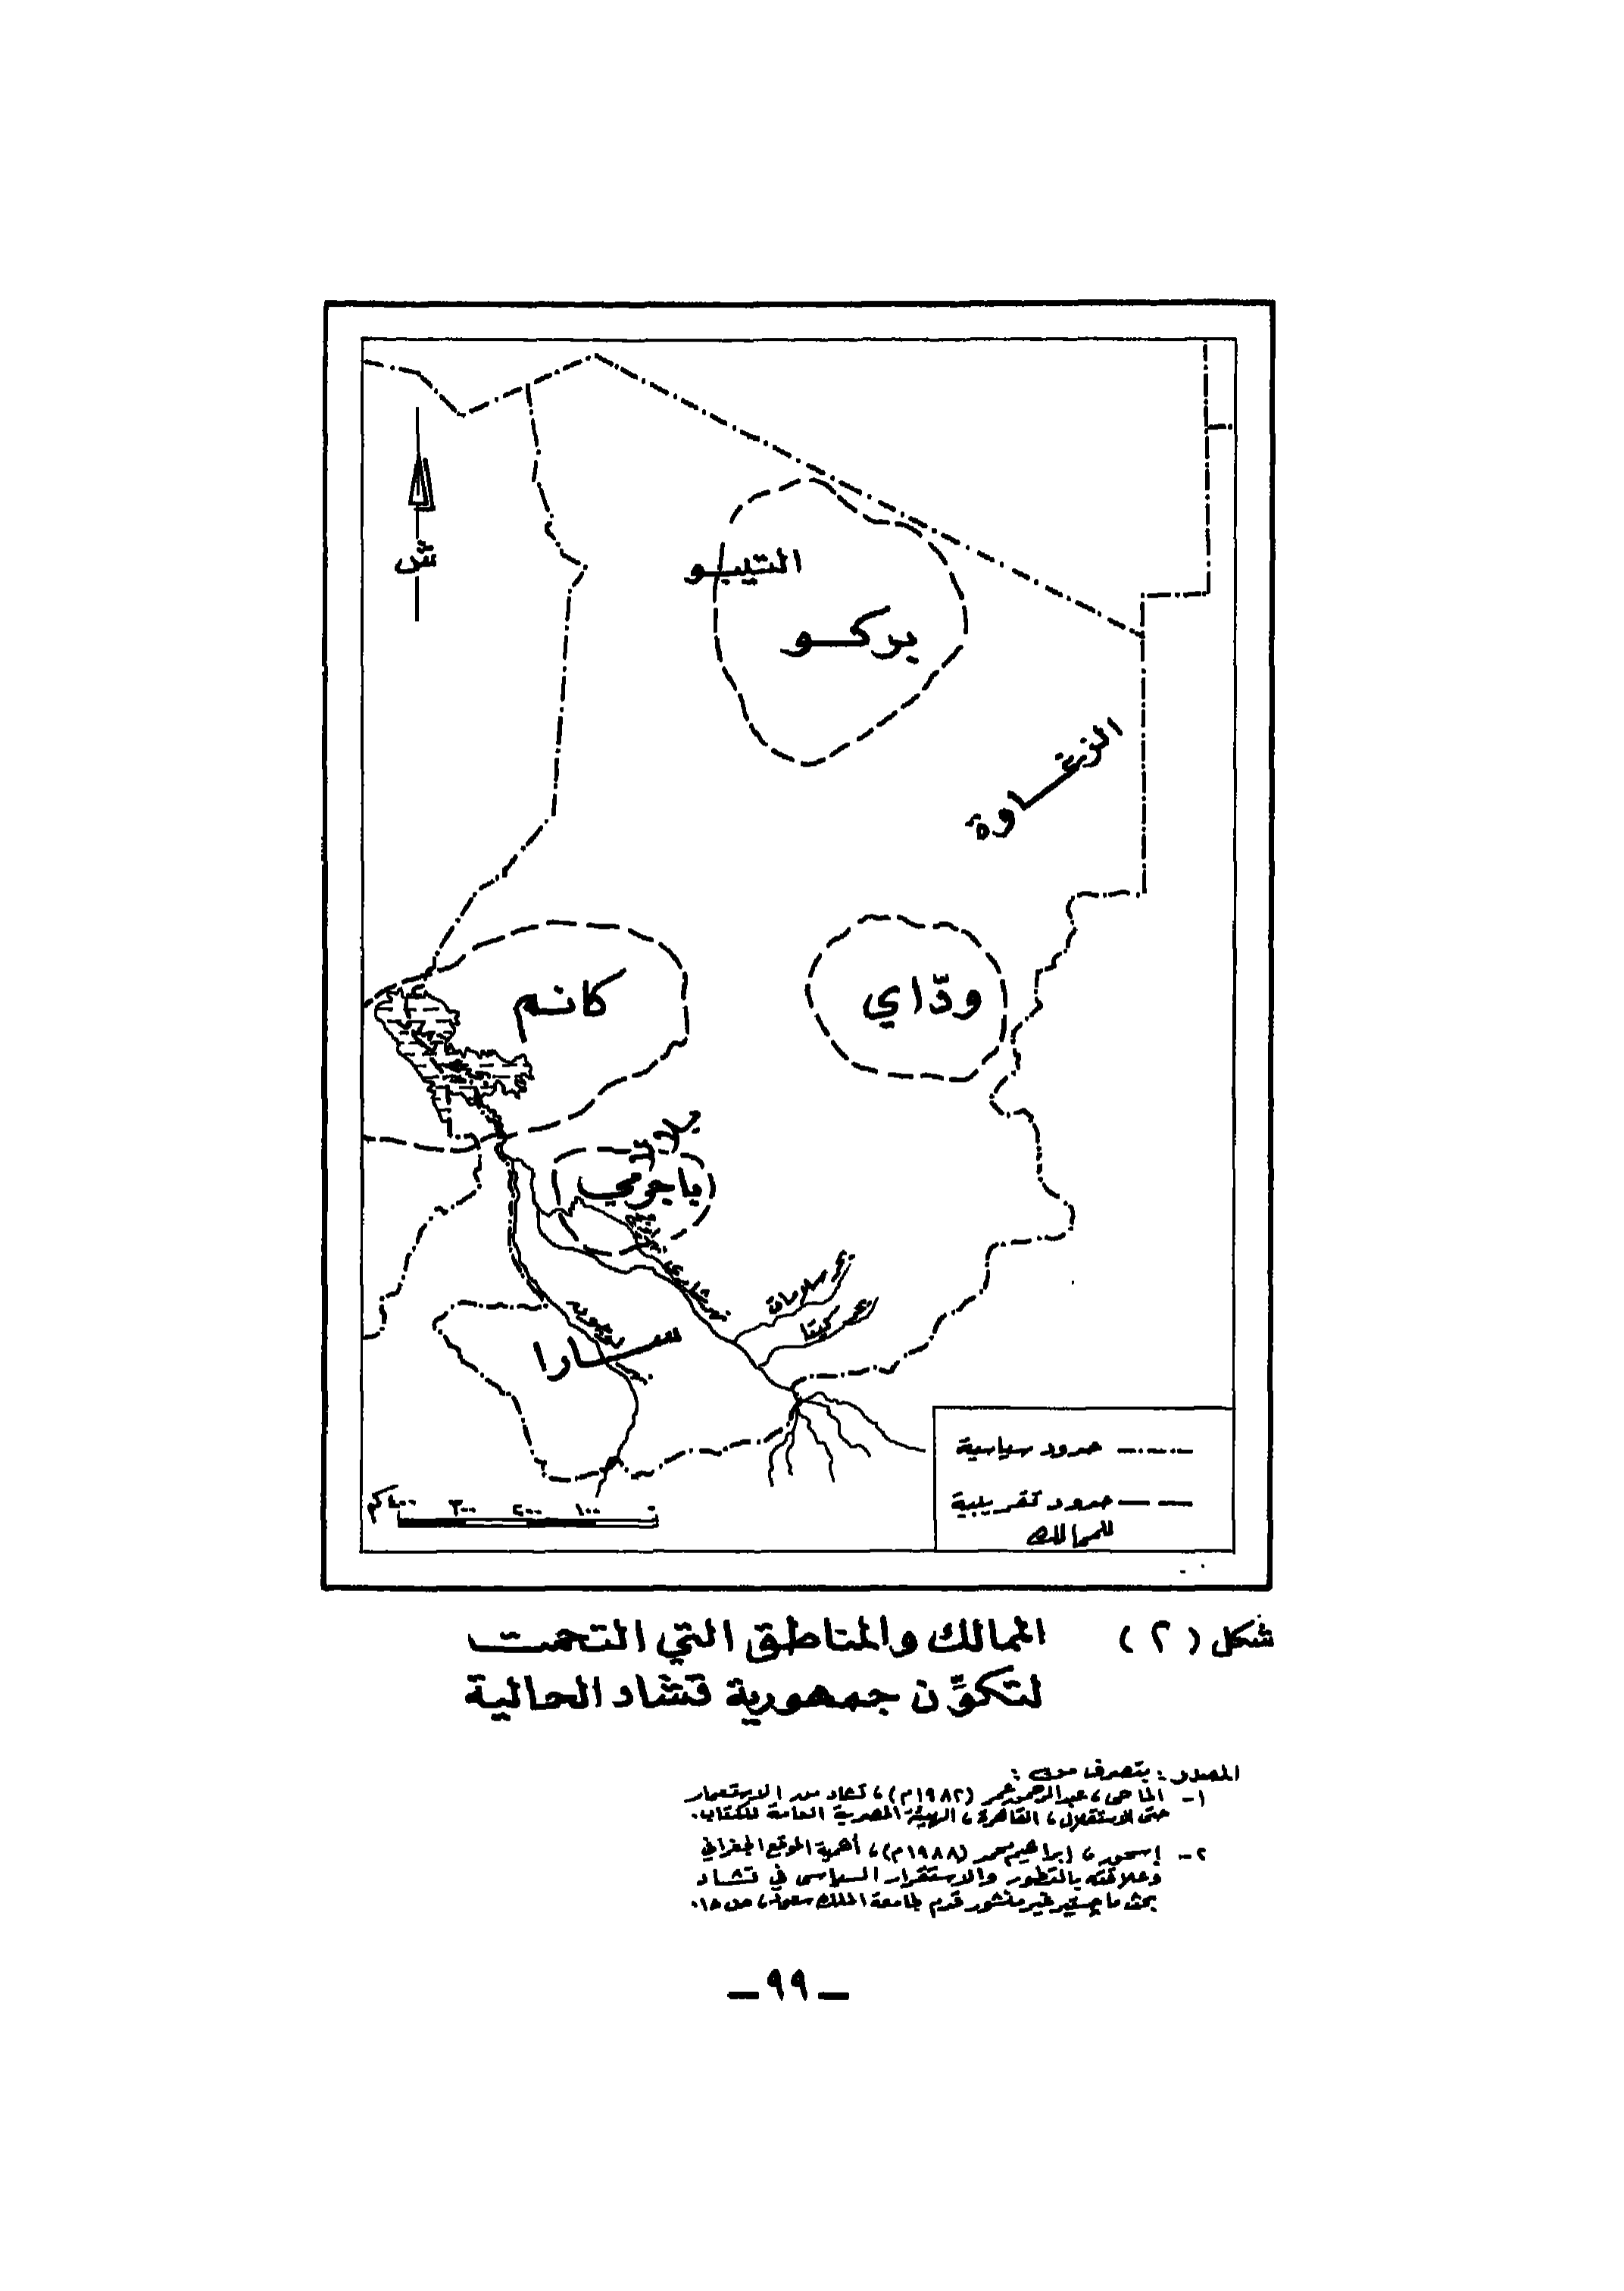 ش
التيبو
بركـو
الزغـاوة
كانـم
ودّاي
بلاد
باجرمي
نهر شاري
بحر سلامات
بحر كيتا
السـارا
حدود سياسية
حدود تقريبية
للممالك
٤٠٠كم ٣٠٠ ٢٠٠ ١٠٠ ٠
شكل (٢) الممالك والمناطق التي التحمت
لتكوِّن جمهورية تشاد الحالية
المصدر: بتصرف من:
١- الماحى، عبدالرحمن عمر (١٩٨٢م)، تشاد من الاستعمار
حتى الاستقلال، القاهرة، الهيئة المصرية العامة للكتاب.
٢- إبراهيم محمد (١٩٨٨م)، أهمية الموقع الجغرافي
وعلاقته بالتطور والاستقرار السياسى في تشاد
بحث ماجستير غير منشور قدم لجامعة الملك سعود، ص
ـ٩٩ـ